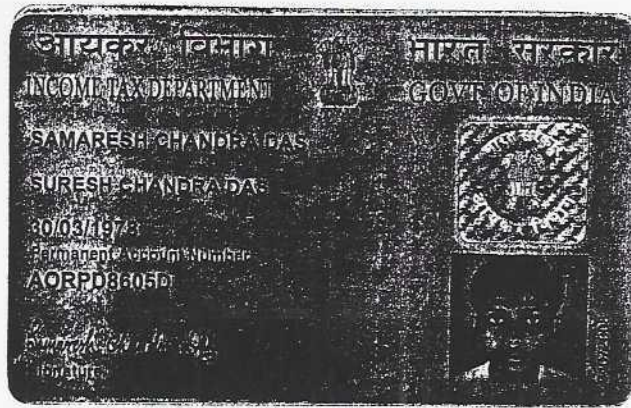 आयकर विभाग
भारत सरकार
INCOME TAX DEPARTMENT
GOVT. OF INDIA
SAMARESH CHANDRA DAS
SURESH CHANDRA DAS
30/03/1978
Permanent Account Number
AORPD8605D
Signature